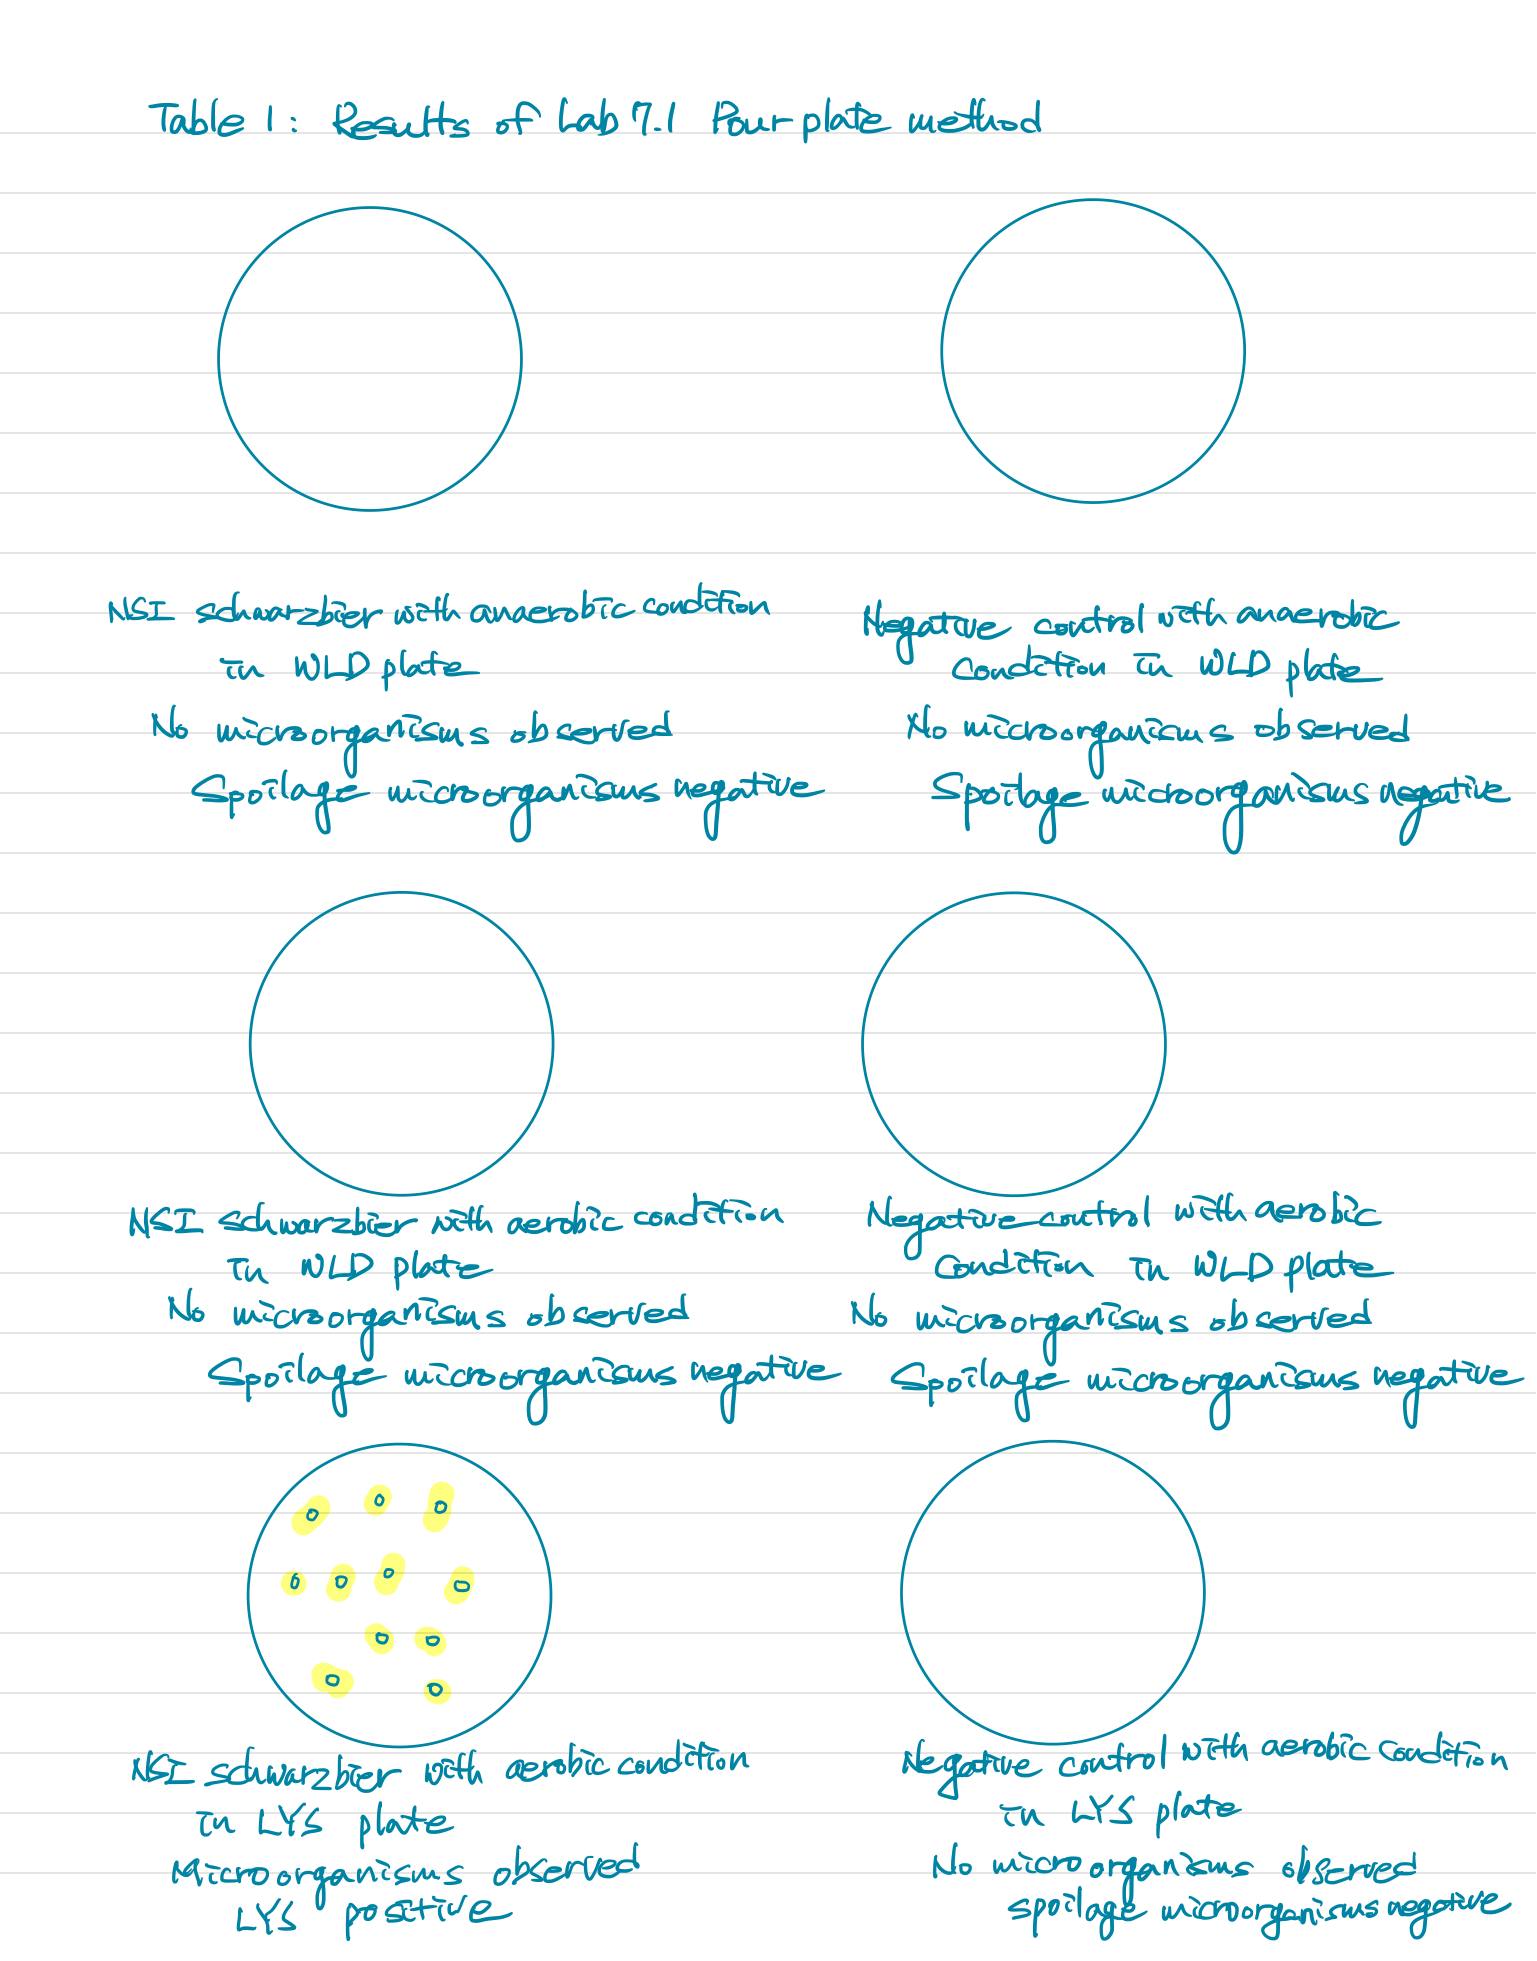 Table 1: Results of Lab 7.1 Pour plate method
NSI schwarzbier with anaerobic condition
in WLD plate
No microorganisms observed
Spoilage microorganisms negative
Negative control with anaerobic
condition in WLD plate
No microorganisms observed
Spoilage microorganisms negative
NSI schwarzbier with aerobic condition
in WLD plate
No microorganisms observed
Spoilage microorganisms negative
Negative control with aerobic
condition in WLD plate
No microorganisms observed
Spoilage microorganisms negative
NSI schwarzbier with aerobic condition
in LYS plate
Microorganisms observed
LYS positive
Negative control with aerobic condition
in LYS plate
No microorganisms observed
spoilage microorganisms negative